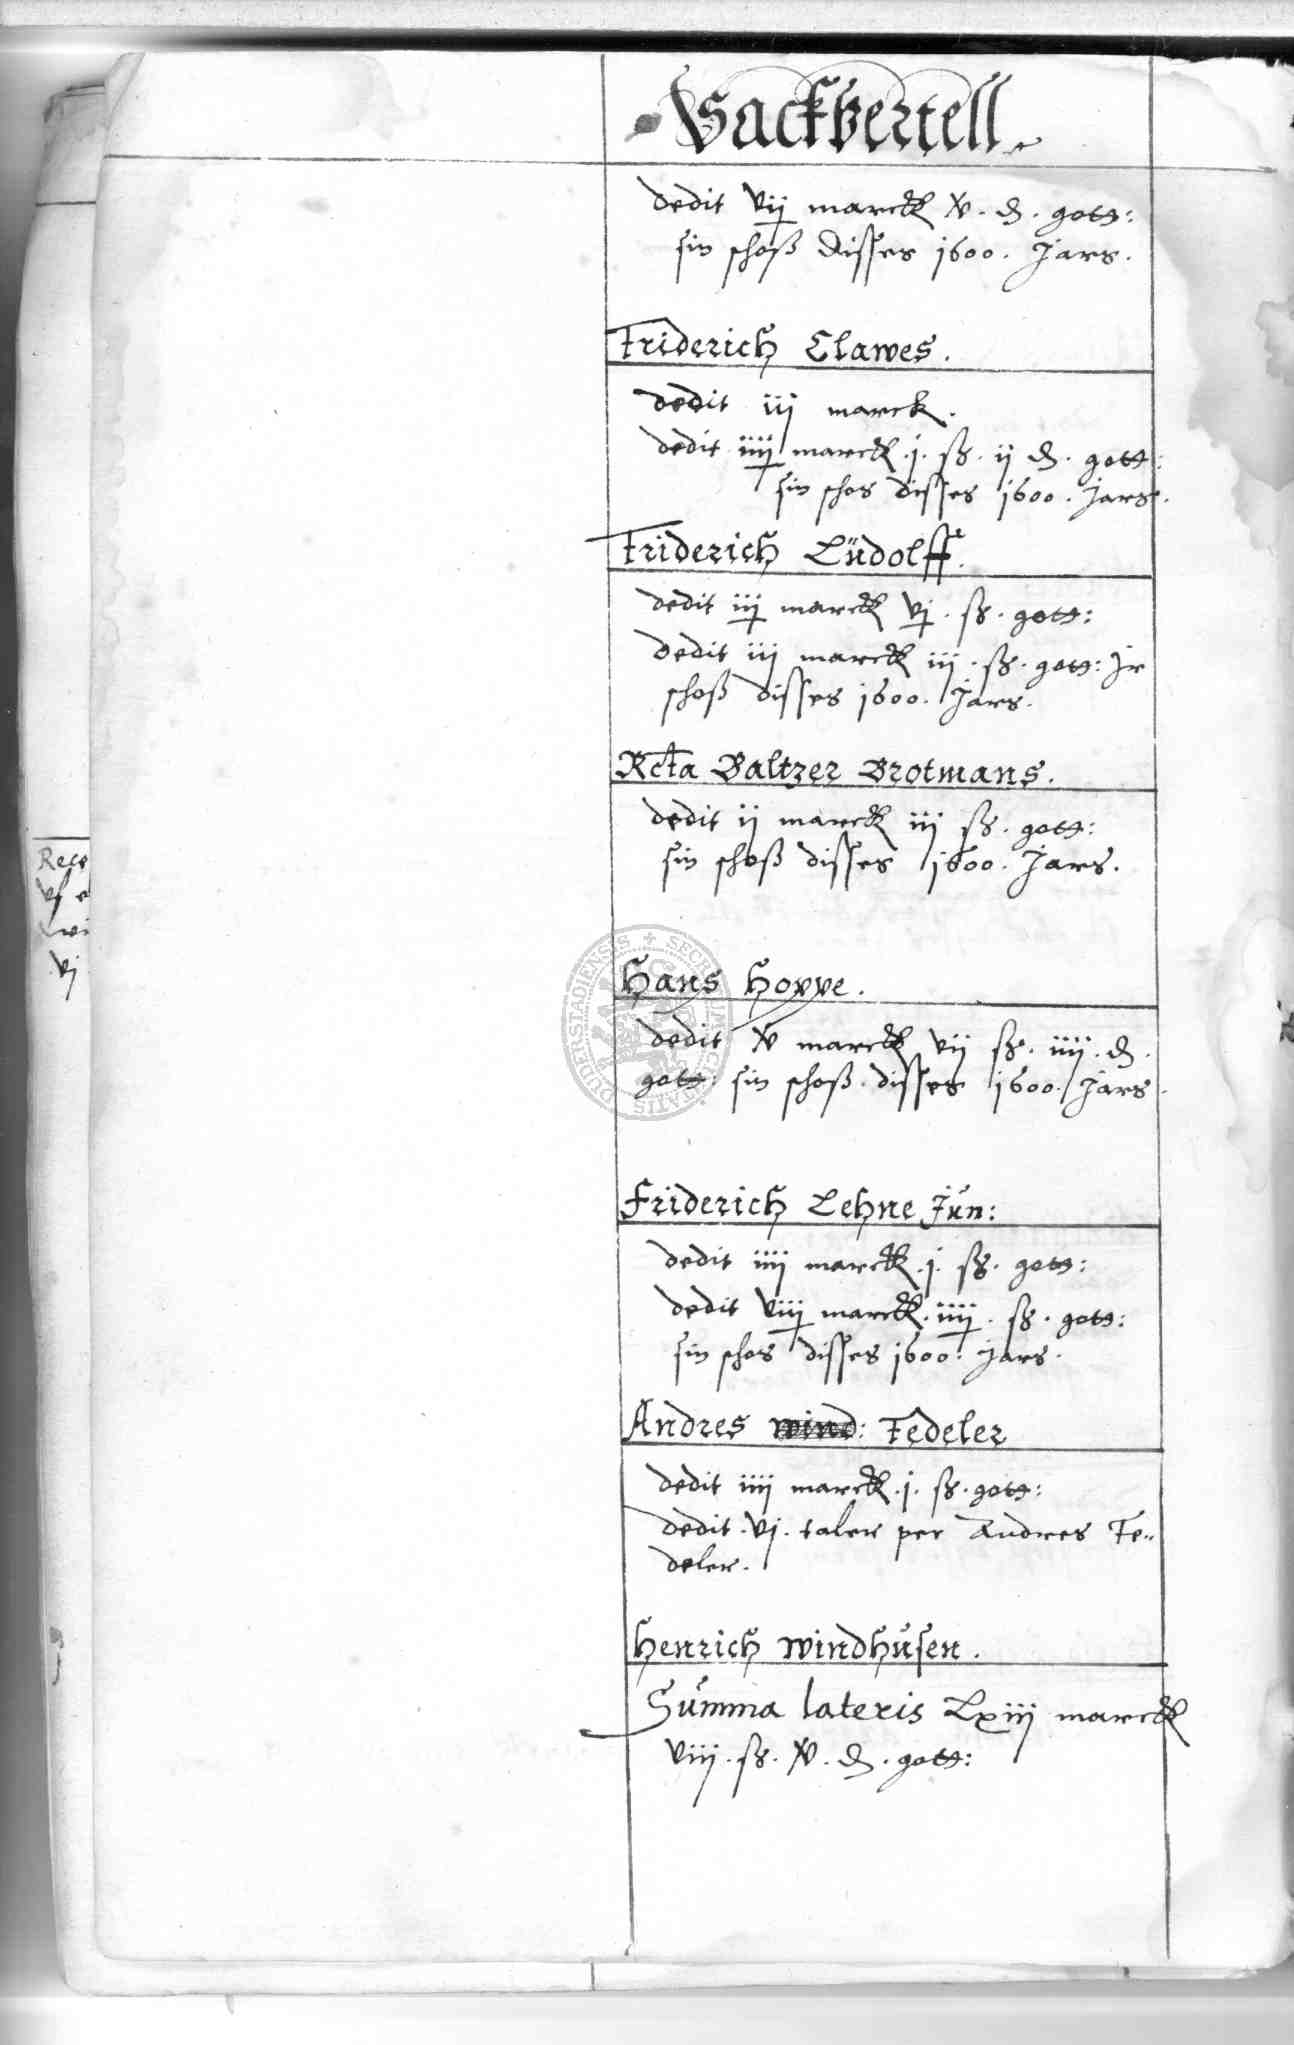 Sackvertell
dedit vij marck xv. d. gott:
sin schoß disses 1600. Jars.
Friderich Clawes.
dedit iij marck.
dedit iiij marck. j. ß. ij d. gott:
sin schos disses 1600. Jars.
Friderich Lüdolff.
dedit iij marck vj. ß. gott:
dedit iij marck iij. ß. gott: Jr
schoß disses 1600. Jars.
Rcta Baltzer Brotmans.
dedit ij marck iij ß. gott:
sin schoß disses 1600. Jars.
Hans Hoppe.
dedit xv marck vij ß. iiij. d.
gott: sin schoß disses 1600. Jars.
Friderich Lehne Jun:
dedit iiij marck. j. ß. gott:
dedit viij marck. iiij. ß. gott:
sin schos disses 1600. Jars.
Andres wind: Tedeler
dedit iiij marck. j. ß. gott:
dedit. vj. taler per Andres Te-
deler.
Henrich Windhusen.
Summa lateris Lxiij marck
viij. ß. xv. d. gott:
Rece
vj
SECRETUM CIVITATIS DUDERSTADIENSIS